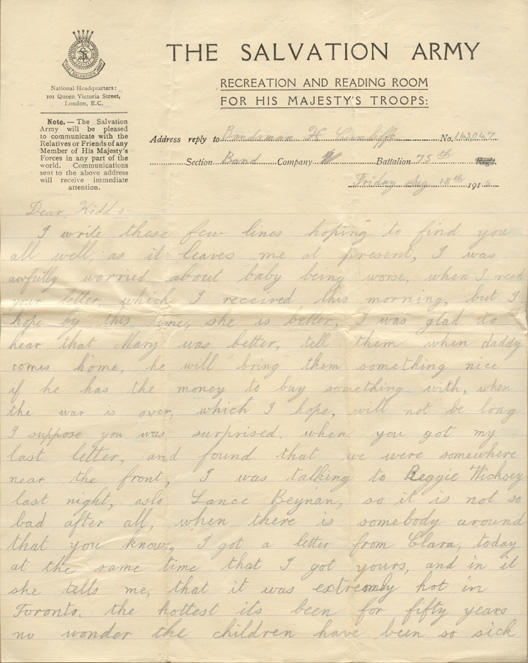 THE SALVATION ARMY
RECREATION AND READING ROOM
FOR HIS MAJESTY'S TROOPS:
National Headquarters:
101 Queen Victoria Street,
London, E.C.
Note.—The Salvation
Army will be pleased
to communicate with the
Relatives or Friends of any
Member of His Majesty's
Forces in any part of the
world. Communications
sent to the above address
will receive immediate
attention.
Address reply to Bandsman H. Cundiff No.
Section Band Company Battalion 75th Regt.
Friday Aug 18th 191
Dear Kiddo
I write these few lines hoping to find you
all well, as it leaves me at present, I was
awfully worried about baby being worse, when I read
your letter, which I received this morning, but I
hope by this time, she is better, I was glad to
hear that Mary was better, tell them when daddy
comes home, he will bring them something nice
if he has the money to buy something with, when
the war is over, which I hope, will not be long
I suppose you was surprised, when you got my
last letter, and found that we were somewhere
near the front, I was talking to Reggie
last night, aslo Lance Beynan, so it is not so
bad after all, when there is somebody around
that you know, I got a letter from Clara, today
at the same time that I got yours, and in it
she tells me, that it was extremly hot in
Toronto, the hottest its been for fifty years
no wonder the children have been so sick